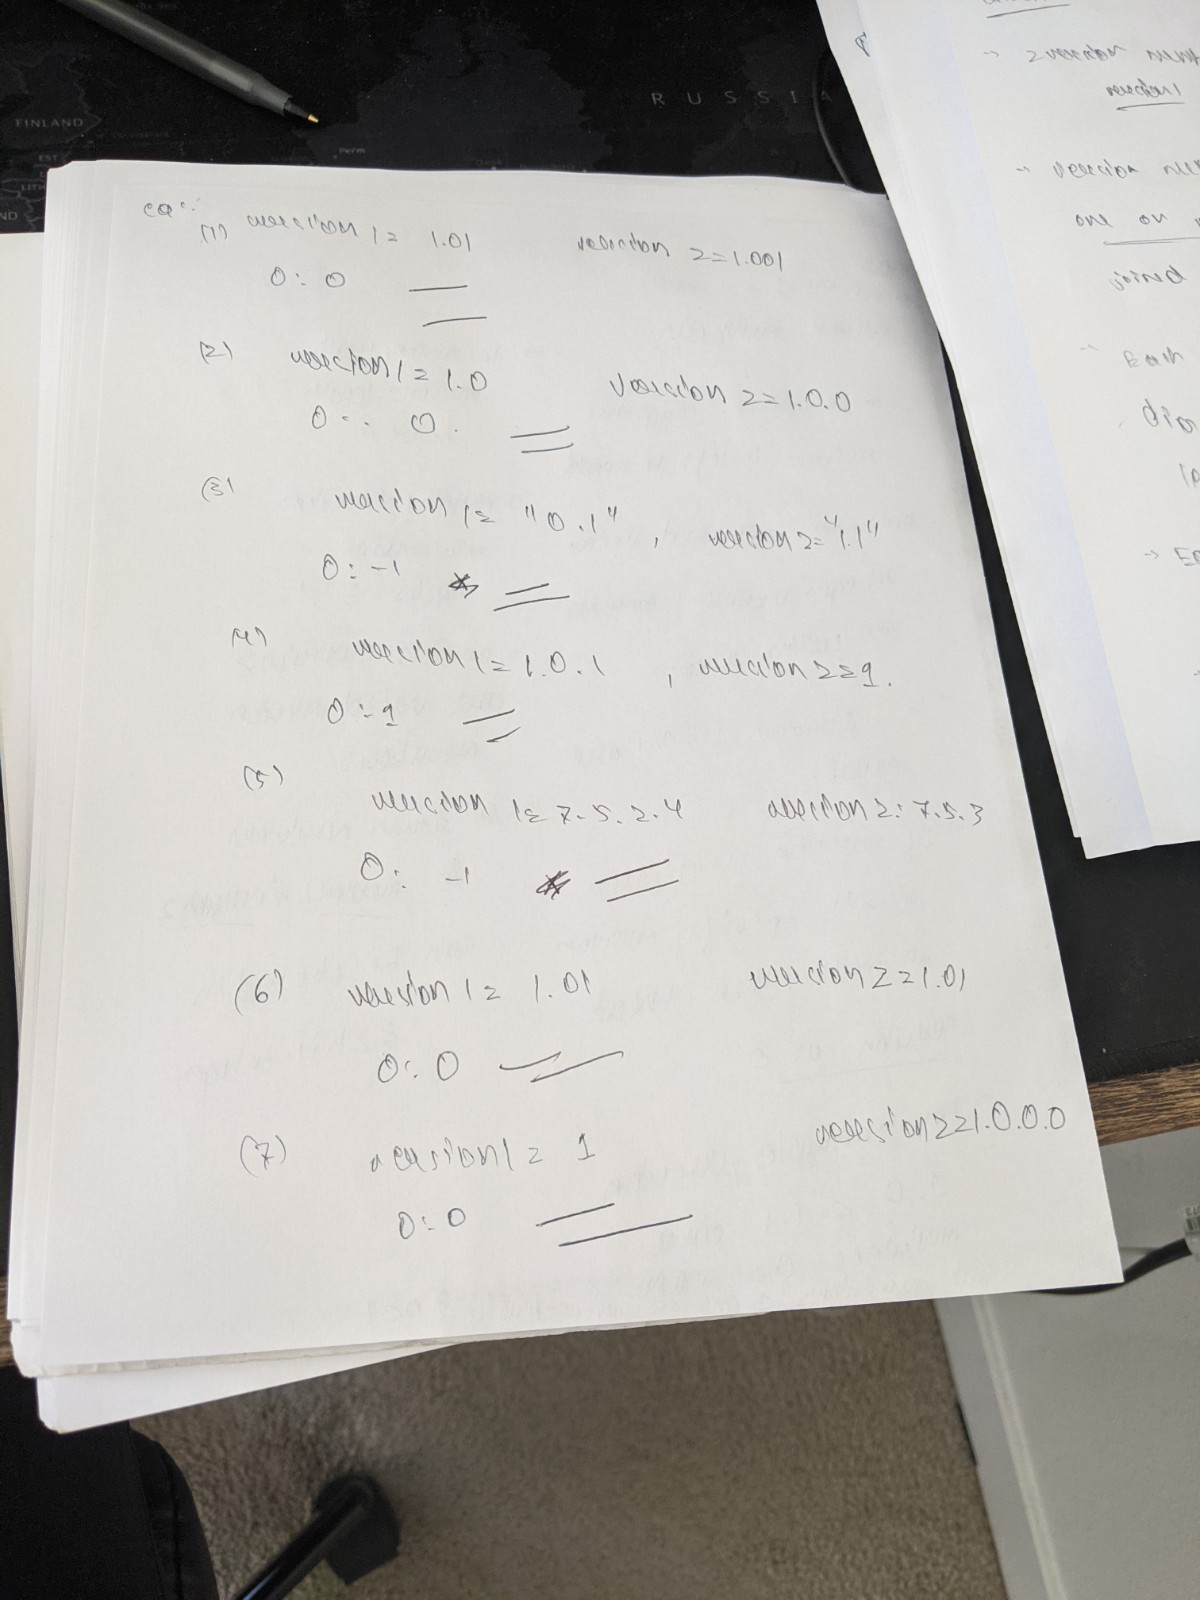 RUSSIA
FINLAND
Perm
EST
eg:
(1) version1= 1.01 version 2=1.001
O: 0
(2) version1= 1.0 version 2=1.0.0
O: 0.
(3) version 1= "0.1", version2="1.1"
O: -1
(4) version1= 1.0.1, version2=1.
O: 1
(5)
version 1= 7.5.2.4 version2: 7.5.3
O: -1
(6) version1= 1.01 version2=1.01
O: 0
(7) version1= 1 version2=1.0.0.0
O: 0
→ 2 version
version1
→ version
one or
joined
Each